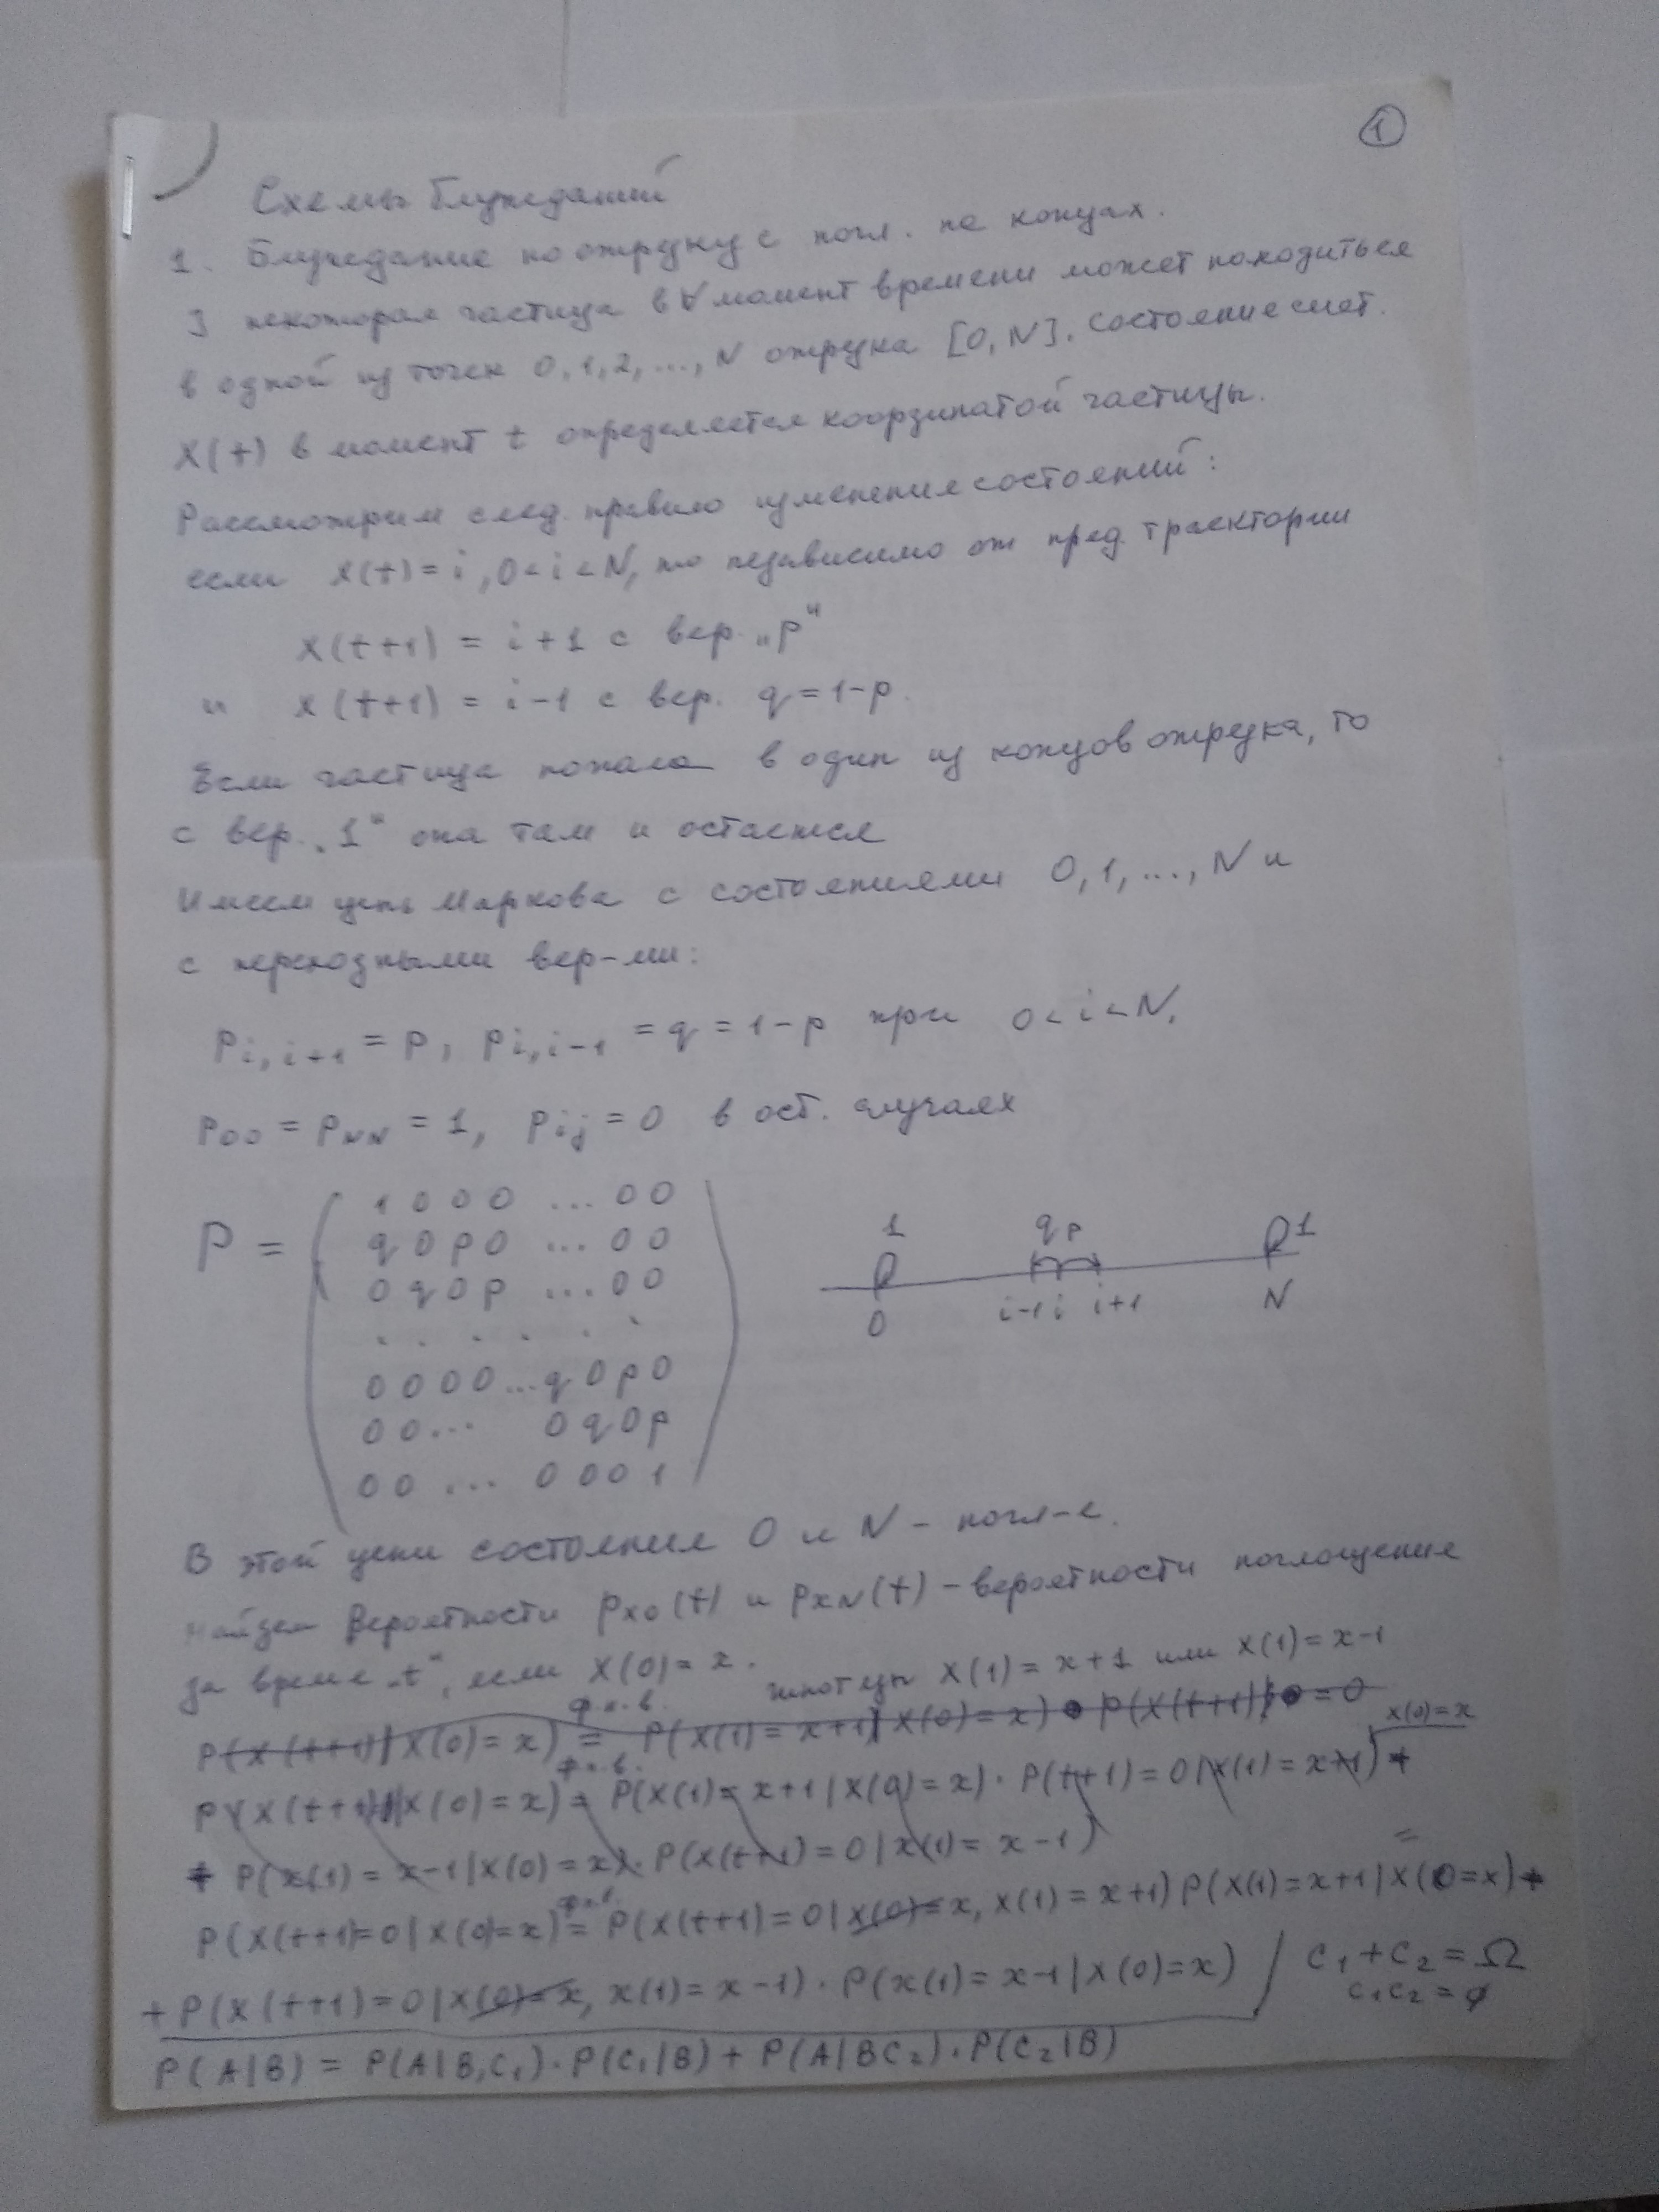 1
Схемы блужданий
1. Блуждание по отрезку с погл. на концах.
] некоторая частица в ∀ момент времени может находиться
в одной из точек 0, 1, 2, ..., N отрезка [0, N]. Состояние сист.
X(t) в момент t определяется координатой частицы.
Рассмотрим след. правило изменения состояний:
если X(t) = i, 0 < i < N, то независимо от пред. траектории
X(t+1) = i+1 с вер. „p“
и X(t+1) = i-1 с вер. q = 1-p.
Если частица попала в один из концов отрезка, то
с вер. „1“ она там и остается
Имеем цепь Маркова с состояниями 0, 1, ..., N и
с переходными вер-ми:
p i, i+1 = p, p i, i-1 = q = 1-p при 0 < i < N,
p00 = pNN = 1, pij = 0 в ост. случаях
1 0 0 0 ... 0 0
P = q 0 p 0 ... 0 0
0 q 0 p ... 0 0
. . . . . .
0 0 0 0 ... q 0 p 0
0 0 ... 0 q 0 p
0 0 ... 0 0 0 1
1 q p 1
0 i-1 i i+1 N
В этой цепи состояния 0 и N - погл-е.
Найдем вероятности px0(t) и pxN(t) - вероятности поглощения
за время „t“, если X(0) = x. гипотезы X(1) = x+1 или X(1) = x-1
ф.п.в.
P(X(t+1) | X(0) = x) = P(X(1) = x+1 | X(0) = x) P(X(t+1) = 0
X(0) = x
ф.п.в.
P(X(t+1) | X(0) = x) = P(X(1) = x+1 | X(0) = x) · P(t+1) = 0 | X(1) = x+1) +
+ P(X(1) = x-1 | X(0) = x) · P(X(t+1) = 0 | X(1) = x-1) =
ф.п.в.
P(X(t+1)=0 | X(0)=x) = P(X(t+1) = 0 | X(0) = x, X(1) = x+1) P(X(1) = x+1 | X(0=x) +
+ P(X(t+1) = 0 | X(0) = x, X(1) = x-1) · P(X(1) = x-1 | X(0) = x)
C1 + C2 = Ω
C1C2 = ∅
P(A|B) = P(A|B,C1) · P(C1|B) + P(A|BC2) · P(C2|B)